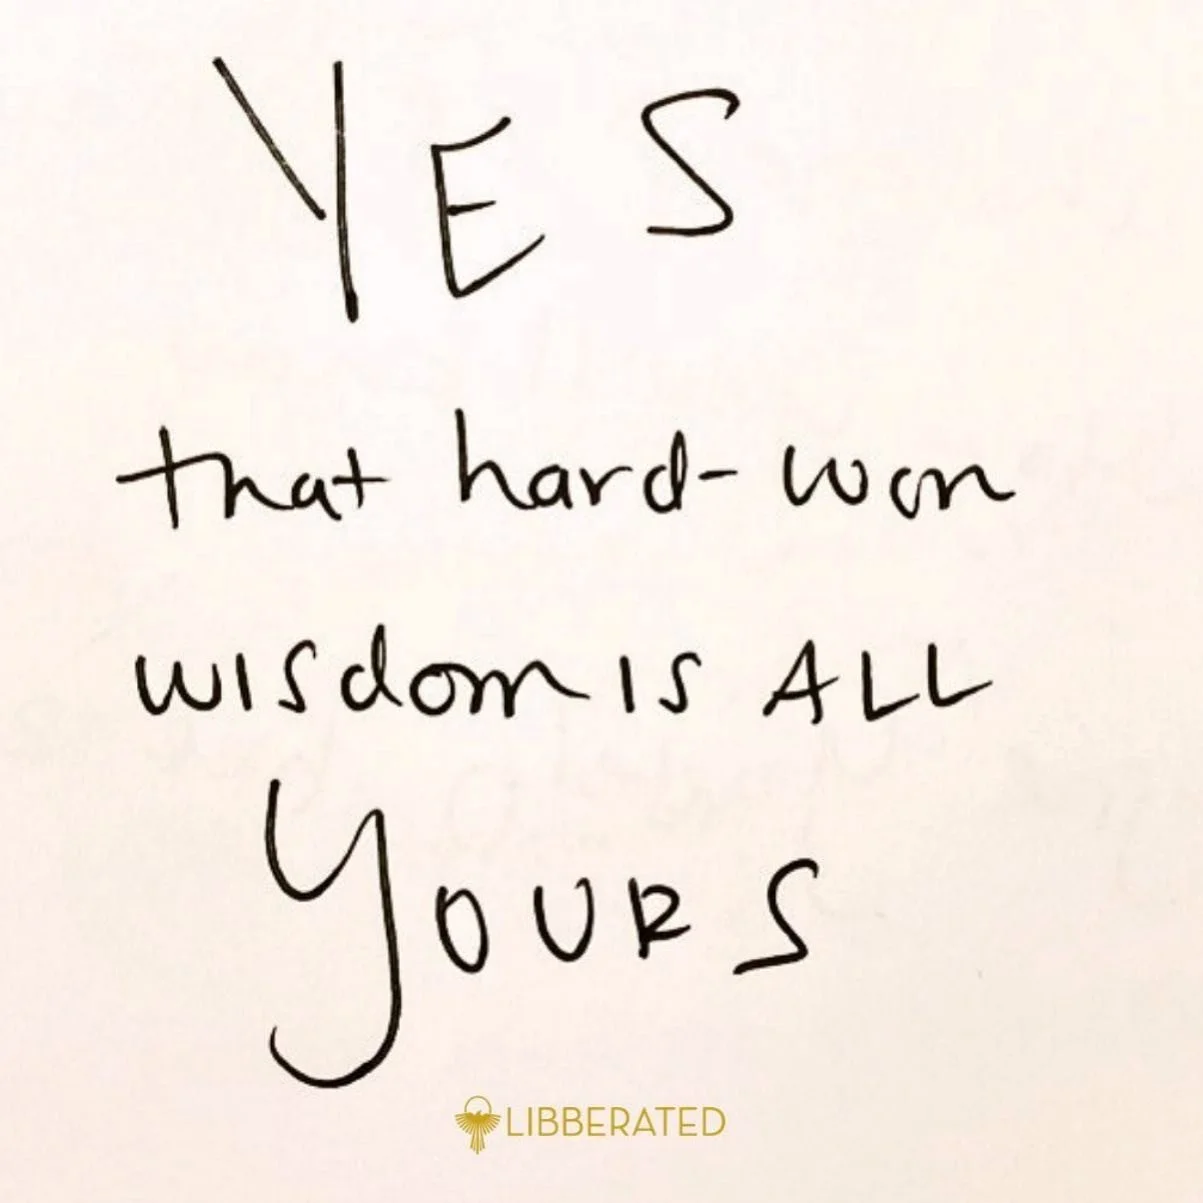 YES
that hard-won
wisdom is ALL
YOURS
LIBBERATED